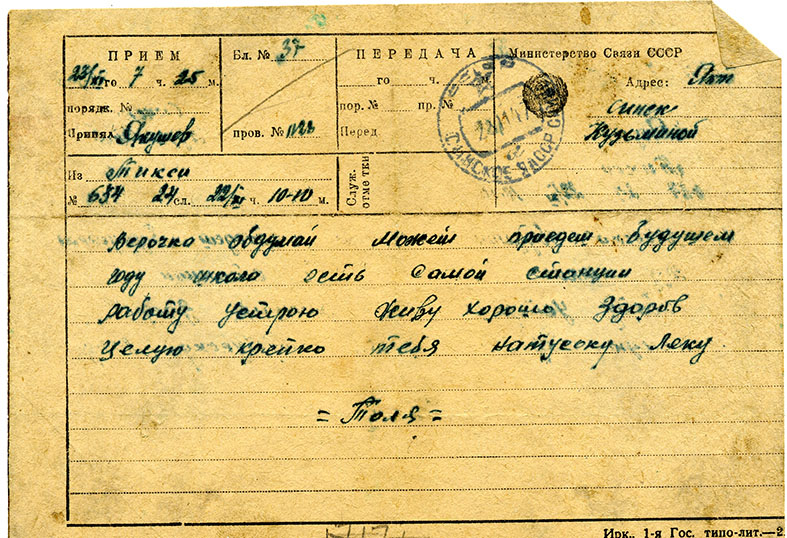 ПРИЕМ
22/XI го 7 ч. 25 м.
порядк. №
Принял Якушев
Бл. № 37
пров. №
ПЕРЕДАЧА
го ч. м.
пор. № пр. №
Перед
Министерство Связи СССР
Адрес: Якт
Синск
Кузьминой
Из Тикси
№ 684 24 сл. 22/XI ч. 10-10 м.
Служ.
отметки
Верочка обдумай может приедеш будущем
году школа есть самой станции
работу устрою живу хорошо здоров
целую крепко тебя Натусеку Ляку
= Толя =
Ирк., 1-я Гос. типо-лит.—2